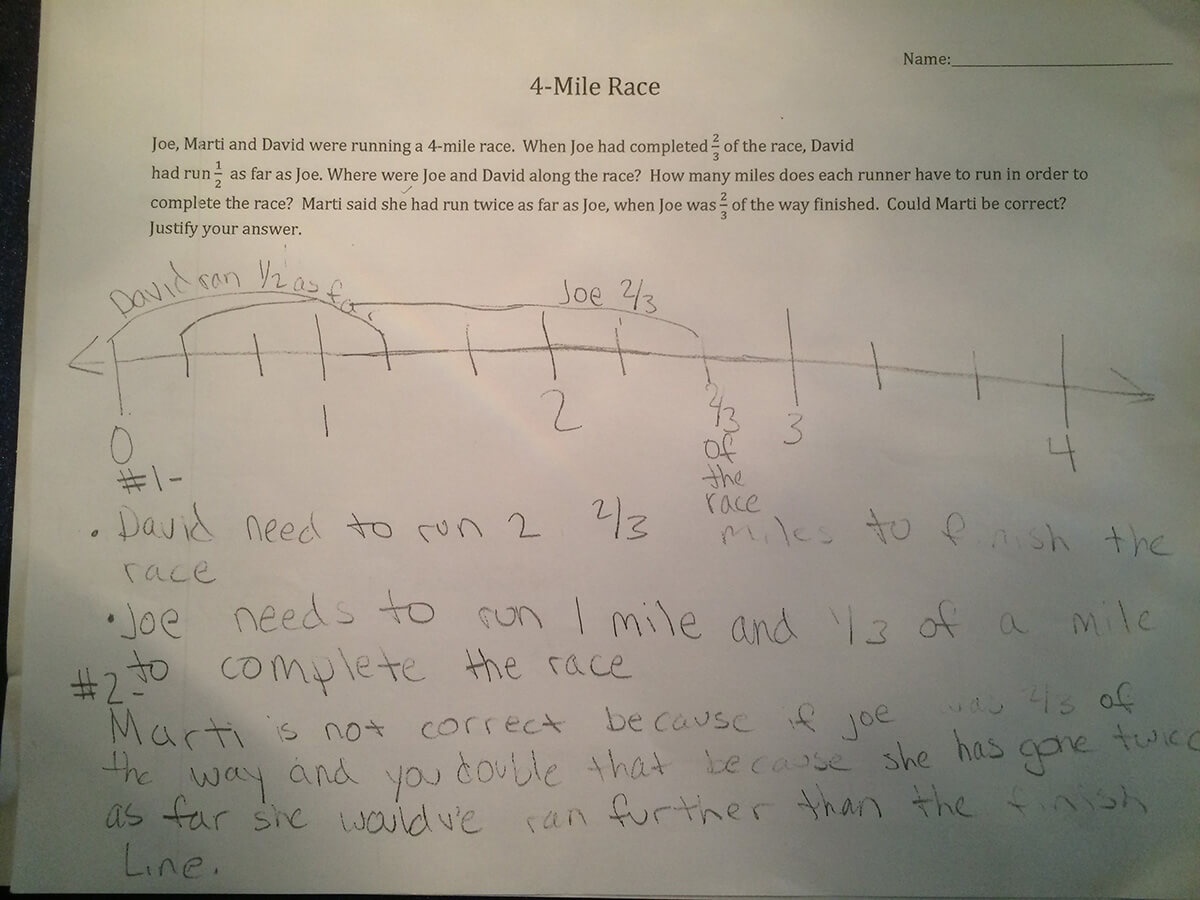 Name:
4-Mile Race
Joe, Marti and David were running a 4-mile race. When Joe had completed 2/3 of the race, David
had run 1/2 as far as Joe. Where were Joe and David along the race? How many miles does each runner have to run in order to
complete the race? Marti said she had run twice as far as Joe, when Joe was 2/3 of the way finished. Could Marti be correct?
Justify your answer.
David ran 1/2 as far
Joe 2/3
0 1 2 2/3 3 4
of
the
race
#1-
• David need to run 2 2/3 miles to finish the
race
• Joe needs to run 1 mile and 1/3 of a mile
to complete the race
#2-
Marti is not correct because if joe was 2/3 of
the way and you double that because she has gone twice
as far she would've ran further than the finish
Line.